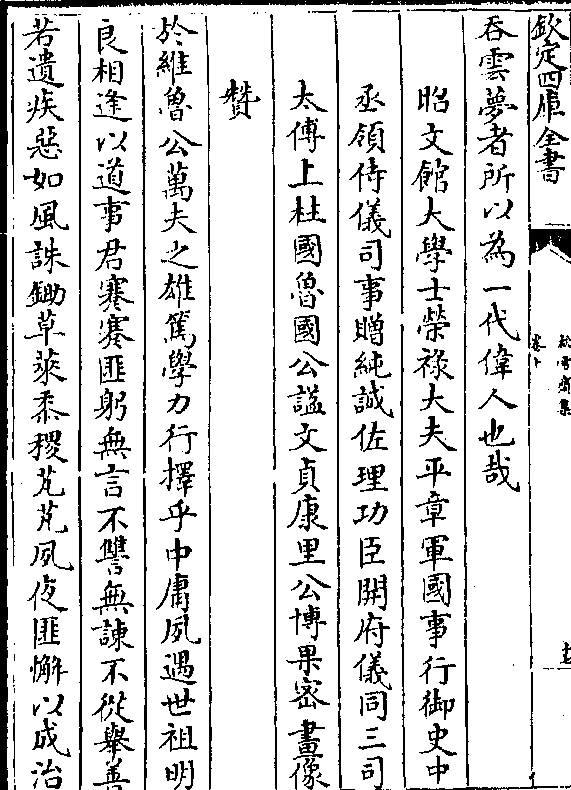 欽定四庫全書
松雪齋集
卷十
吞雲夢者所以為一代偉人也哉
昭文館大學士榮祿大夫平章軍國事行御史中
丞領侍儀司事贈純誠佐理功臣開府儀同三司
太傅上柱國魯國公諡文貞康里公博果密畫像
贊
於維魯公萬夫之雄篤學力行擇乎中庸夙遇世祖明
良相逢以道事君蹇蹇匪躬無言不讐無諫不從舉善
若遺疾惡如風誅鋤草萊黍稷芃芃夙夜匪懈以成治